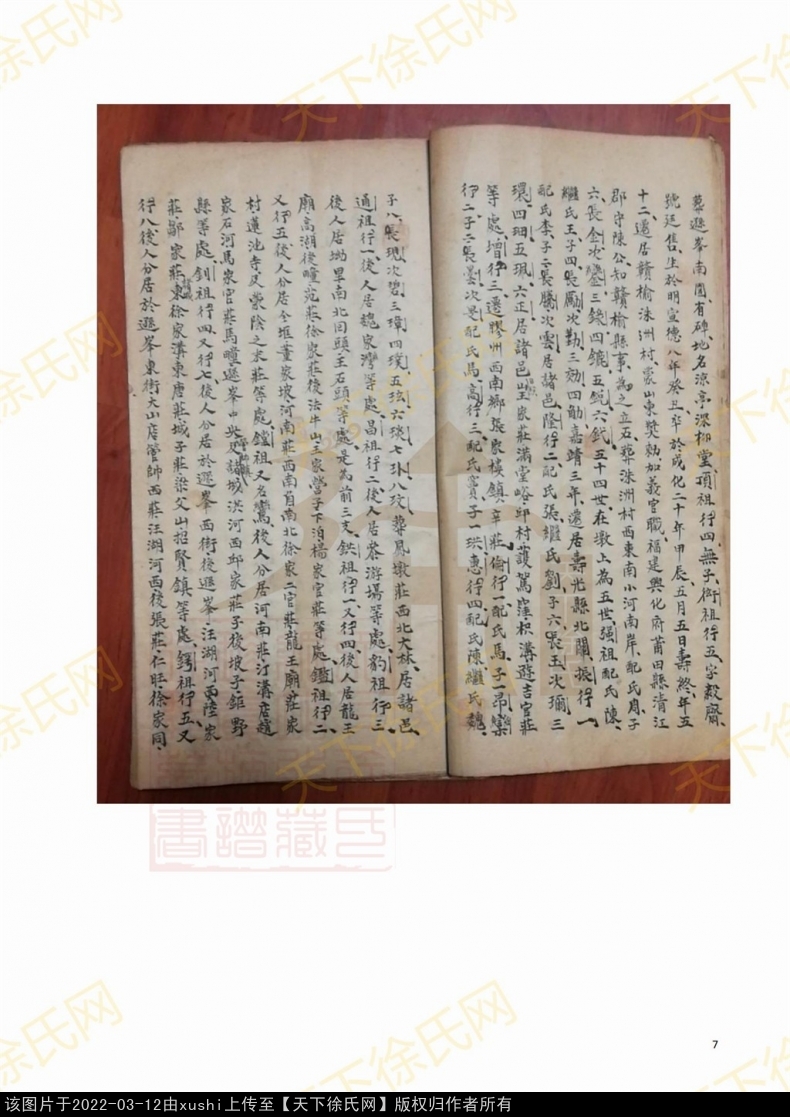 葬遜峯南関有碑地名涼亭深柳堂項祖行四無子衛祖行五字毅齋
號延隹生於明宣德八年癸丑卒於成化二十年甲辰五月五日壽終年五
十二遷居贛榆洙洲村蒙山東奬勅加義官職福建興化府莆田縣清江
郡守陳公知贛榆縣事為之立石葬洙洲村西東南小河南岸配氏周子
六長金次鑾三錄四鑣五銳六釴五十四世在墩上為五世强祖配氏陳
繼氏王子四長勵次勤三効四勛嘉靖三年遷居壽光縣北關振行一
配氏李子二長騰次雲居諸邑隆行二配氏張繼氏劉子六長玉次珊三
環四珝五珮六正居諸邑山王家莊滿堂峪邱村護駕窪枳溝遊吉官莊
等處增行三遷膠州西南鄉張家樓鎮辛莊倫行一配氏馬子一昂欒
行二子二長曇次景配氏馬高行三配氏竇子一珙惠行四配氏陳繼氏魏
子八長現次碧三璋四璞五玹六琰七玐八玟葬鳳墩莊西北大林居諸邑
通祖行一後人居魏家灣等處昌祖行二後人居岺游塲等處豹祖行三
後人居坳里南北囙頭王石頭等處是為前三支鉷祖行一又行四後人居龍王
廟高湖後疃苑莊徐家莊後法牛山王家營子下泊楊家官莊等處鑑祖行二
又行五後人分居仝堐董家坡河南莊西南自南北徐家二官莊龍王廟莊宋
村蓮池寺及蒙陰之末莊等處鐘祖又名鸞後人分居河南莊汀溝店趙
家石河馬家官莊馬疃遜峯中央及諸城洪河西邱家莊子後坡子鉅野
縣等處釗祖行四又行七後人分居於遜峯西街後遜峯汪湖河西陸家
莊鄒家莊東徐家溝東唐莊城子莊梁父山招賢鎮等處鍔祖行五又
行八後人分居於遜峯東街大山店管帥西莊汪湖河西後張莊仁旺徐家同
書譜藏氏
天下徐氏网
7
该图片于2022-03-12由xushi上传至【天下徐氏网】版权归作者所有